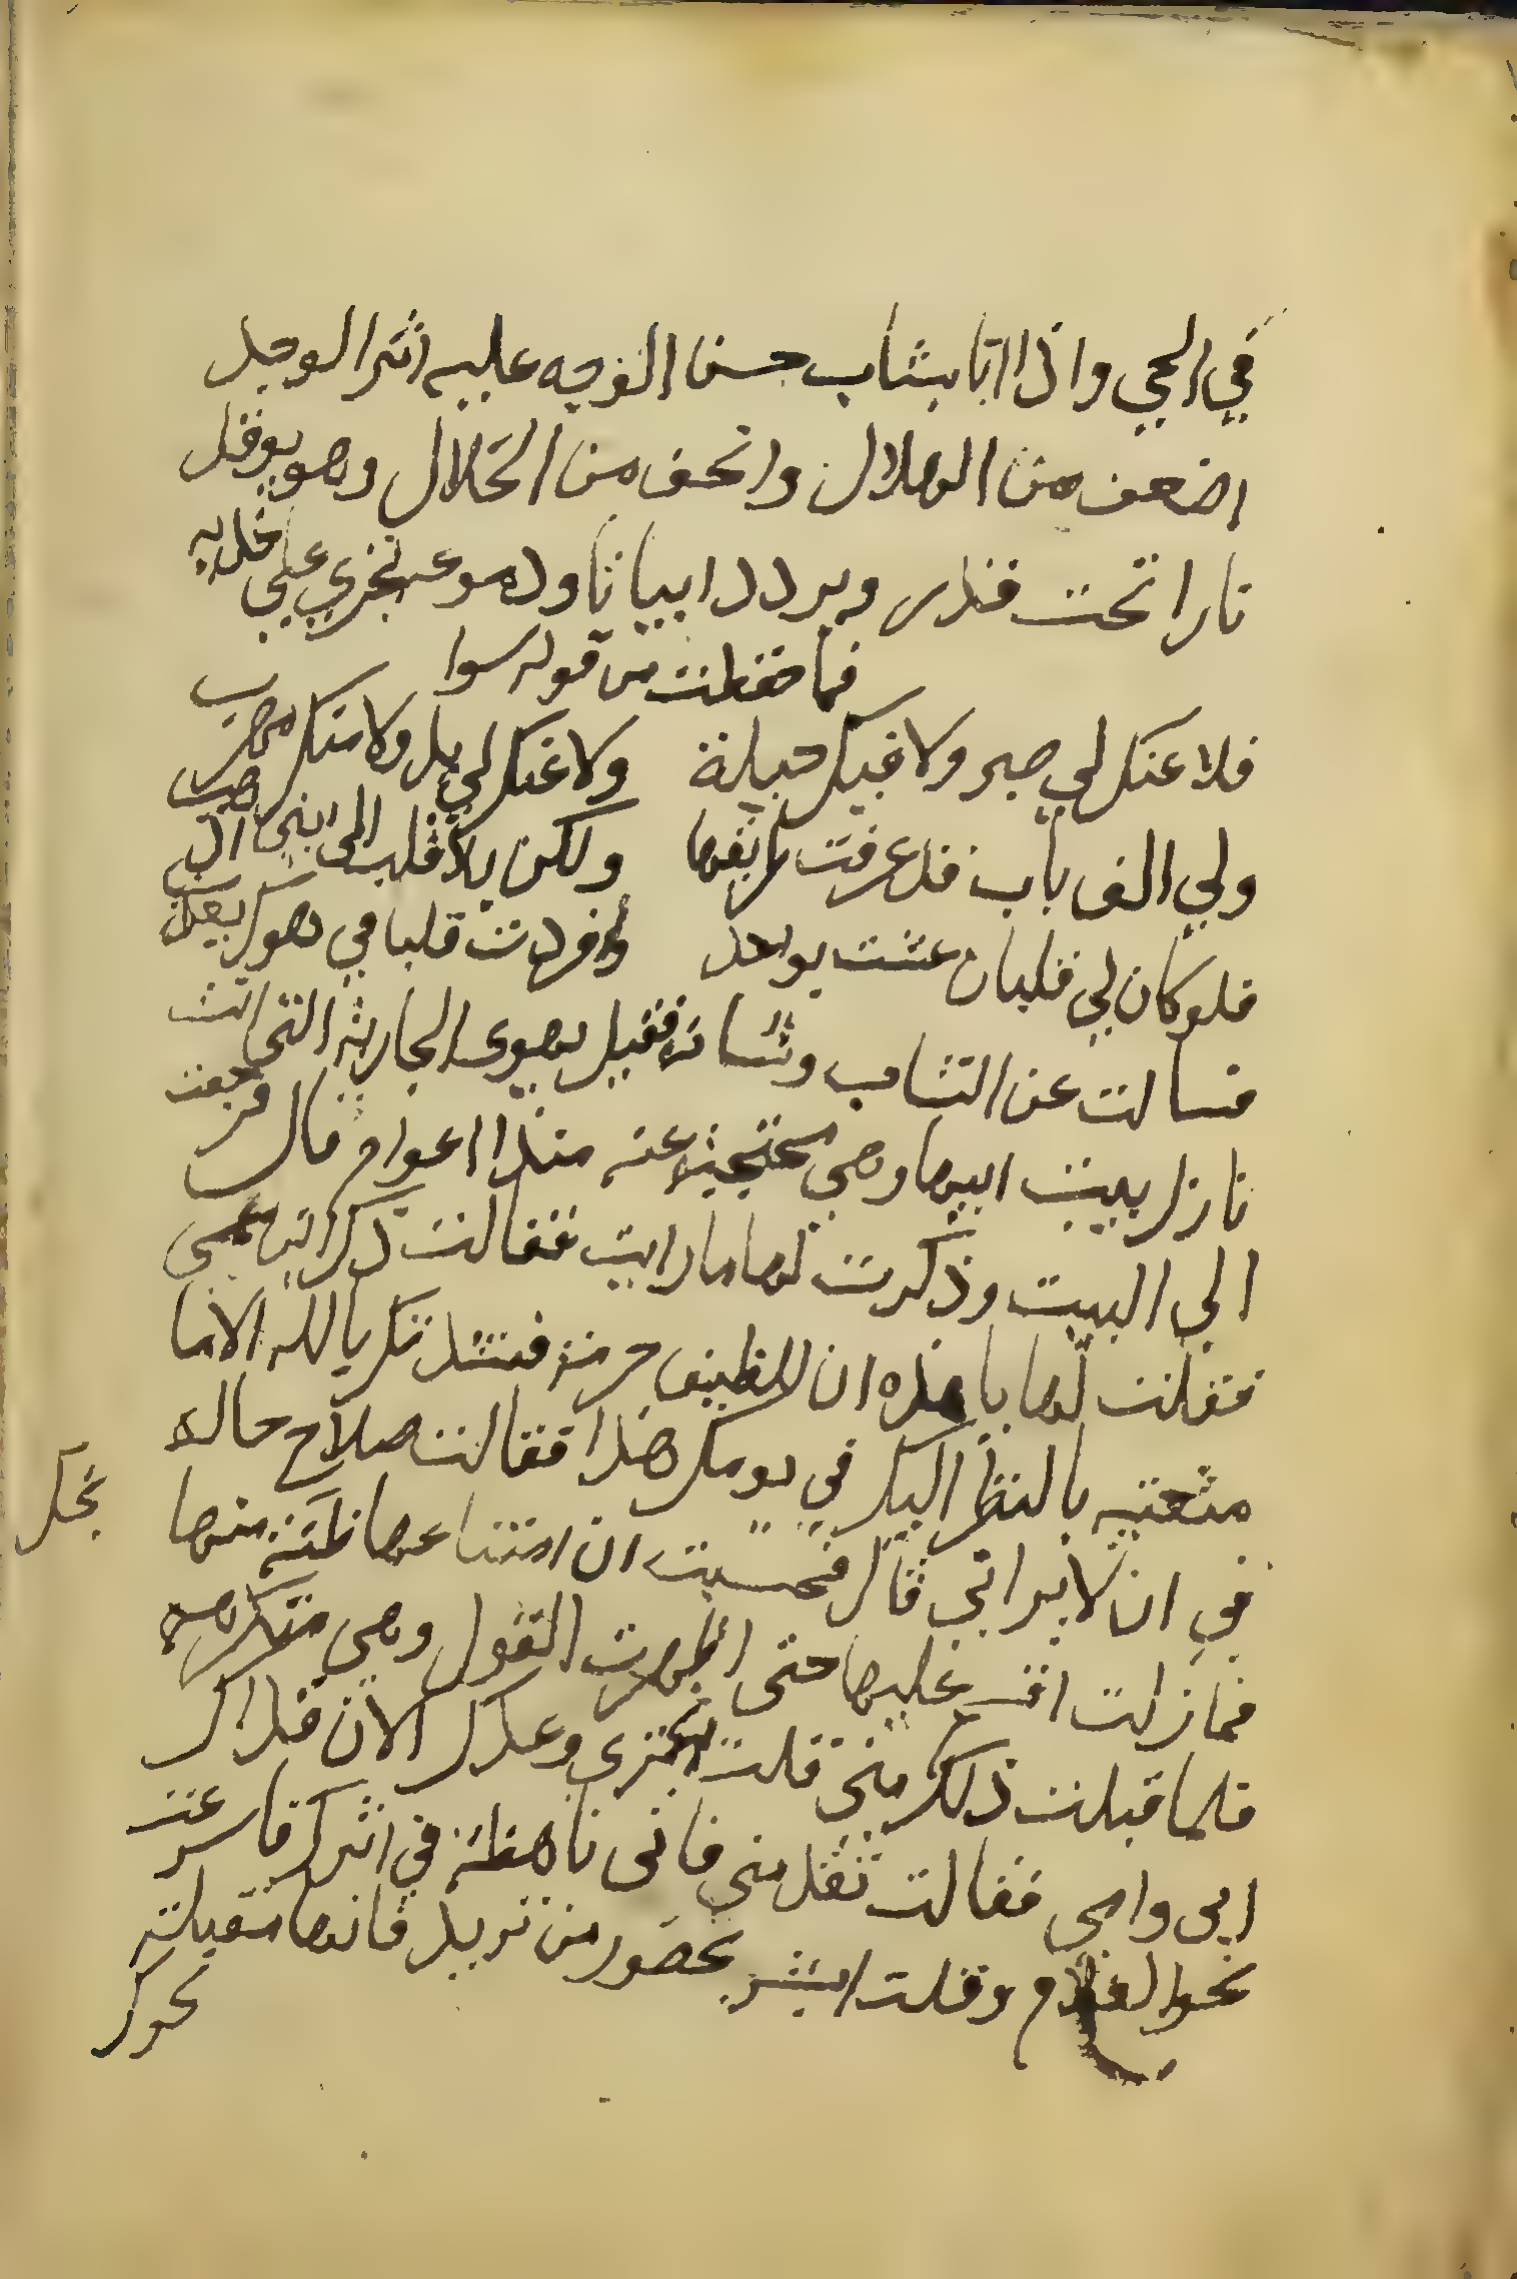 في الحي واذا انا بشاب حسن الوجه عليه اثر الوجل
اضعف من الهلال وانحف من الخلال وهو يوقد
نارا تحت قدر ويردد ابياتا ودموعه تجري على خديه
فما حفظت من قوله سوا
فلا عنك لي صبر ولا فيك حيلة ولا عنك لي بد ولا منك مهرب
ولي الف باب قد عرفت طريقها ولكن بلا قلب الى اين اذهب
فلو كان لي قلبان عشت بواحد وافردت قلبا في هواك يعذب
فسالت عن الشاب وشانه فقيل يهوى الجارية التي انت
نازل ببيت ابيها وهي محتجبة عنه منذ اعوام قال فرجعت
الى البيت وذكرت لها ما رايت فقالت ذاك ابن عمي
فقلت لها يا هذه ان للضيف حرمة فنشدتك بالله الا ما
متعتيه بالنظر اليك في يومك هذا فقالت صلاح حاله
في ان لا يراني قال فحسبت ان امتناعها ظنة منها
فما زلت اقسم عليها حتى اظهرت القبول وهي متكرهه
فلما قبلت ذلك مني قلت انجزي وعدك الان فداك
ابي وامي فقالت تقدمني فاني ناهضة في اثرك فاسرعت
نحو الغلام وقلت ابشر بحضور من تريد فانها مقبلة
نحوك